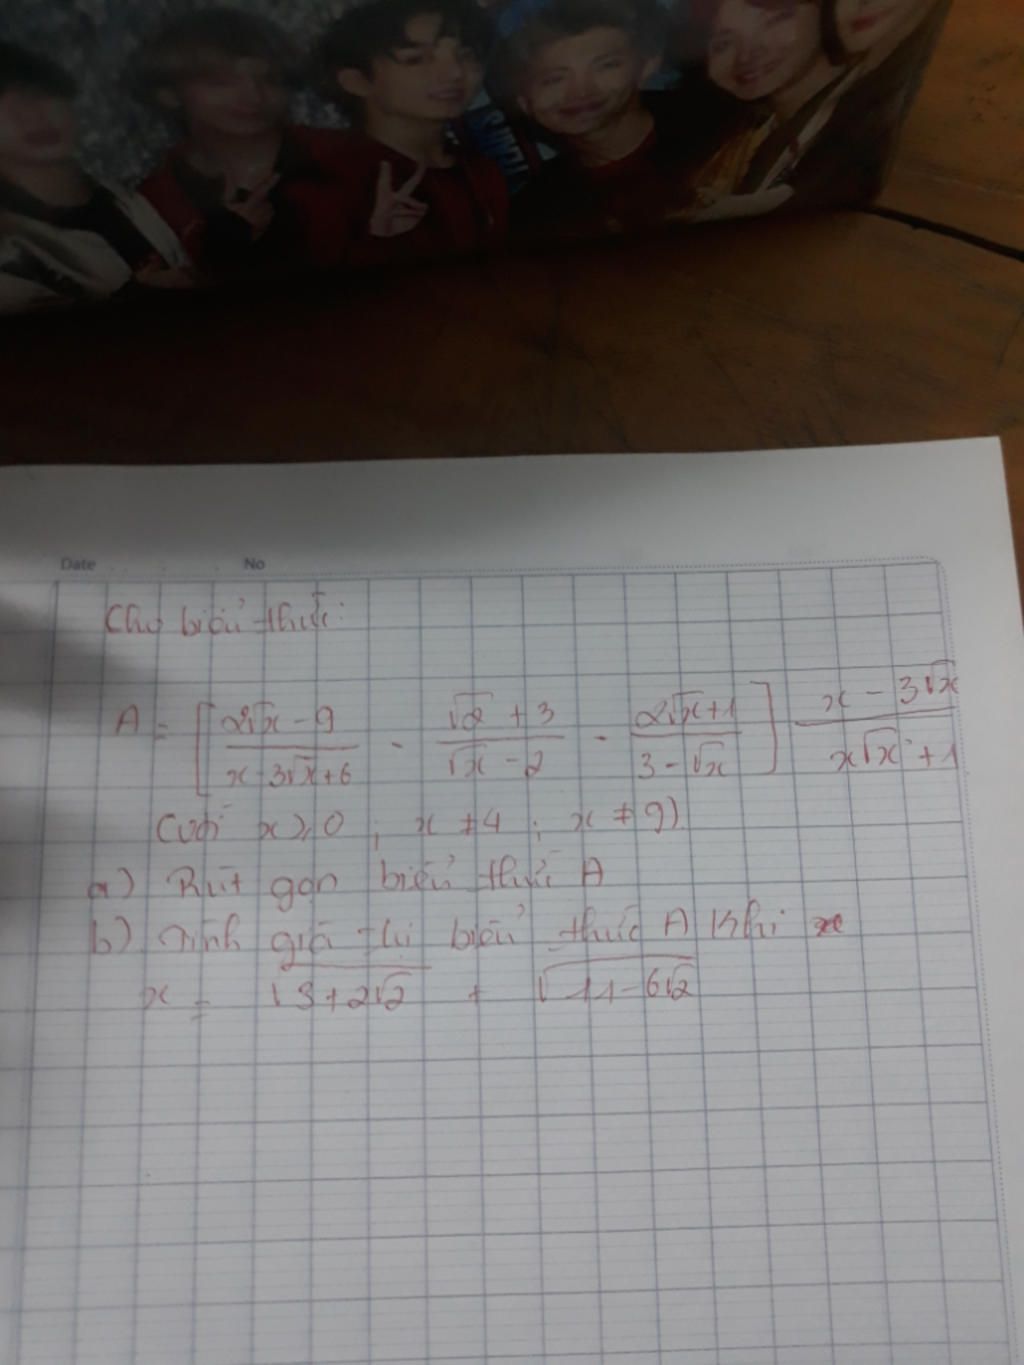 Date No
Cho biểu thức:
A = [ (2√x - 9)/(x - 3√x + 6) - (√2 + 3)/(√x - 2) - (2√x + 1)/(3 - √x) ] (x - 3√x)/(x√x + 1)
(với x ≥ 0 ; x ≠ 4 ; x ≠ 9)
a) Rút gọn biểu thức A
b) Tính giá trị biểu thức A Khi
x = √(3 + 2√2) + √(11 - 6√2)